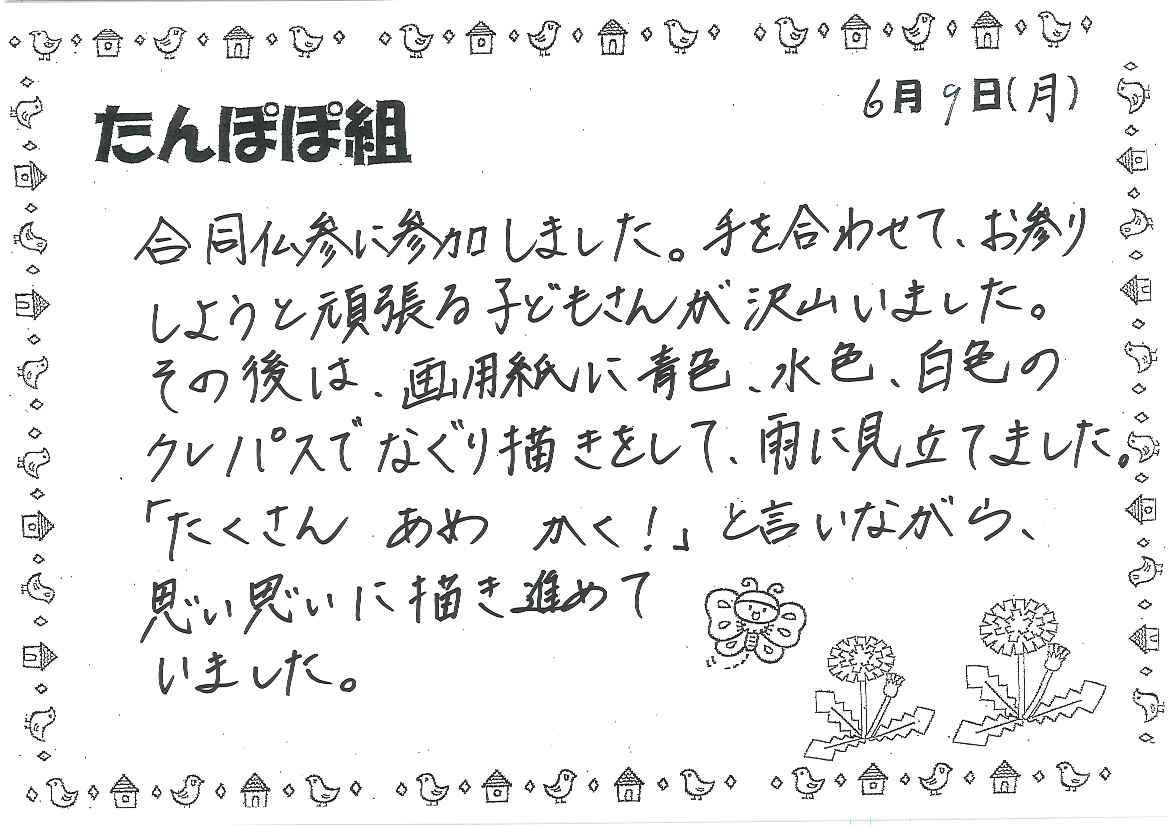 6月9日(月)
たんぽぽ組
合同仏参に参加しました。手を合わせて、お参り
しようと頑張る子どもさんが沢山いました。
その後は、画用紙に青色、水色、白色の
クレパスでなぐり描きをして、雨に見立てました。
「たくさん あめ かく!」と言いながら、
思い思いに描き進めて
いました。